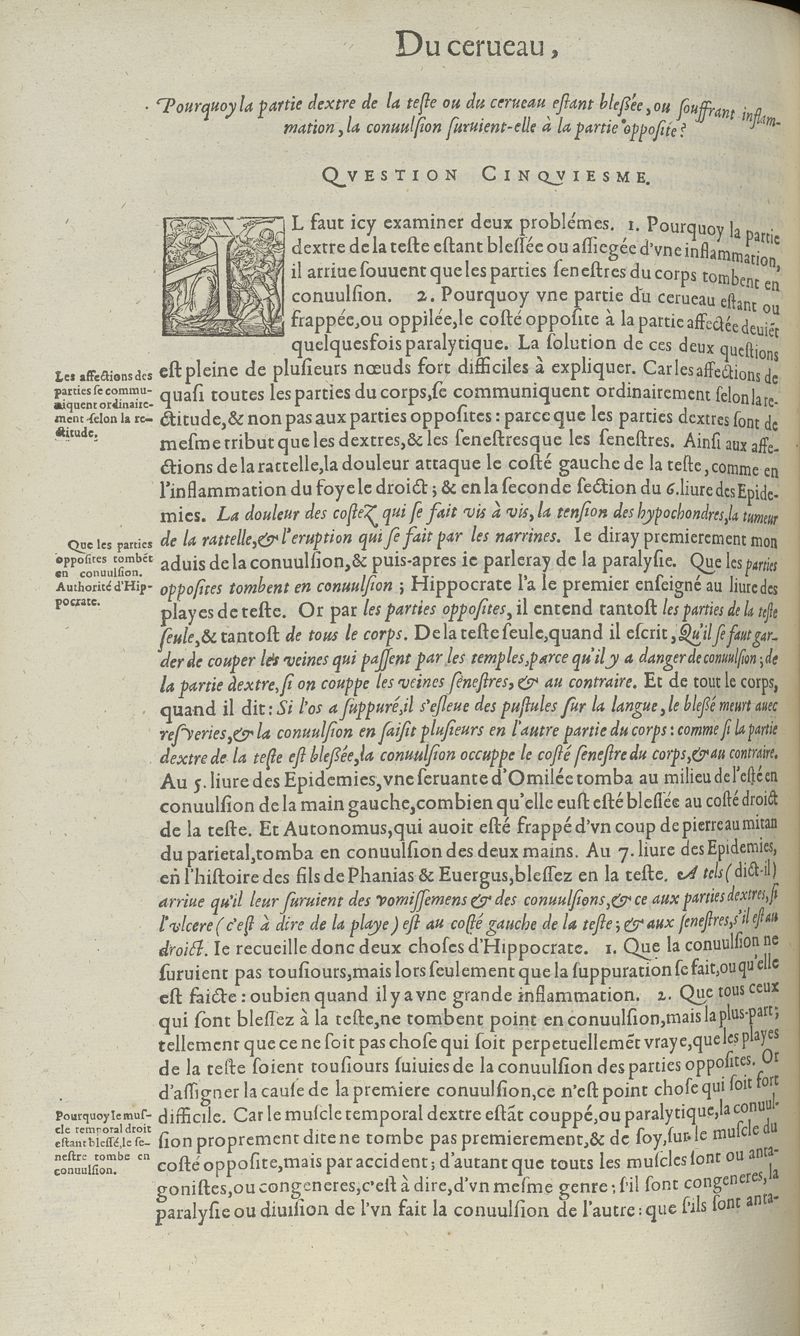 Du cerueau,
Pourquoy la partie dextre de la teſte ou du cerueau eſtant bleßée, ou ſouffrant inflam-
mation, la conuulſion ſuruient-elle à la partie oppoſite?
QVESTION CINQVIESME.
IL faut icy examiner deux problémes. 1. Pourquoy la partie
dextre de la teſte eſtant bleſſée ou aſſiegée d'vne inflammation,
il arriue ſouuent que les parties ſeneſtres du corps tombent en
conuulſion. 2. Pourquoy vne partie du cerueau eſtant ou
frappée, ou oppilée, le coſté oppoſite à la partie affectée deuiẽt
quelquesfois paralytique. La ſolution de ces deux queſtions
eſt pleine de pluſieurs nœuds fort difficiles à expliquer. Car les affections de
quaſi toutes les parties du corps, ſe communiquent ordinairement ſelon la re-
ctitude, & non pas aux parties oppoſites: parce que les parties dextres ſont de
meſme tribut que les dextres, & les ſeneſtres que les ſeneſtres. Ainſi aux affe-
ctions de la rattelle, la douleur attaque le coſté gauche de la teſte, comme en
l'inflammation du foye le droict; & en la ſeconde ſection du 6. liure des Epide-
mies. La douleur des coſtez qui ſe fait vis à vis, la tenſion des hypochondres, la tumeur
de la rattelle, & l'eruption qui ſe fait par les narrines. Ie diray premierement mon
aduis de la conuulſion, & puis-apres ie parleray de la paralyſie. Que les parties
oppoſites tombent en conuulſion; Hippocrate l'a le premier enſeigné au liure des
playes de teſte. Or par les parties oppoſites, il entend tantoſt les parties de la teſte
ſeule, & tantoſt de tous le corps. De la teſte ſeule, quand il eſcrit, Qu'il ſe faut gar-
der de couper les veines qui paſſent par les temples, parce qu'il y a danger de conuulſion; de
la partie dextre, ſi on couppe les veines ſeneſtres, & au contraire. Et de tout le corps,
quand il dit: Si l'os a ſuppuré, il s'eſleue des puſtules ſur la langue, le bleßé meurt auec
reſveries, & la conuulſion en ſaiſit pluſieurs en l'autre partie du corps: comme ſi la partie
dextre de la teſte eſt bleßée, la conuulſion occuppe le coſté ſeneſtre du corps, & au contraire.
Au 5. liure des Epidemies, vne ſeruante d'Omilée tomba au milieu de l'eſté en
conuulſion de la main gauche, combien qu'elle euſt eſté bleſſée au coſté droict
de la teſte. Et Autonomus, qui auoit eſté frappé d'vn coup de pierre au mitan
du parietal, tomba en conuulſion des deux mains. Au 7. liure des Epidemies,
en l'hiſtoire des fils de Phanias & Euergus, bleſſez en la teſte. A tels (dict-il)
arriue qu'il leur ſuruient des vomiſſemens & des conuulſions, & ce aux parties dextres, ſi
l'vlcere (c'eſt à dire de la playe) eſt au coſté gauche de la teſte; & aux ſeneſtres, s'il eſt au
droict. Ie recueille donc deux choſes d'Hippocrate. 1. Que la conuulſion ne
ſuruient pas touſiours, mais lors ſeulement que la ſuppuration ſe fait, ou qu'elle
eſt faicte: ou bien quand il y a vne grande inflammation. 2. Que tous ceux
qui ſont bleſſez à la teſte, ne tombent point en conuulſion, mais la plus-part;
tellement que ce ne ſoit pas choſe qui ſoit perpetuellemẽt vraye, que les playes
de la teſte ſoient touſiours ſuiuies de la conuulſion des parties oppoſites. Or
d'aſſigner la cauſe de la premiere conuulſion, ce n'eſt point choſe qui ſoit fort
difficile. Car le muſcle temporal dextre eſtãt couppé, ou paralytique, la conuul-
ſion proprement dite ne tombe pas premierement, & de ſoy, ſur le muſcle du
coſté oppoſite, mais par accident; d'autant que touts les muſcles ſont ou anta-
goniſtes, ou congeneres, c'eſt à dire, d'vn meſme genre; ſ'il ſont congeneres, la
paralyſie ou diuiſion de l'vn fait la conuulſion de l'autre: que ſ'ils ſont anta-
Les affections des
parties ſe commu-
niquent ordinaire-
ment ſelon la re-
ctitude.
Que les parties
oppoſites tombẽt
en conuulſion.
Authorité d'Hip-
pocrate.
Pourquoy le muſ-
cle temporal droit
eſtant bleſſé, le ſe-
neſtre tombe en
conuulſion.